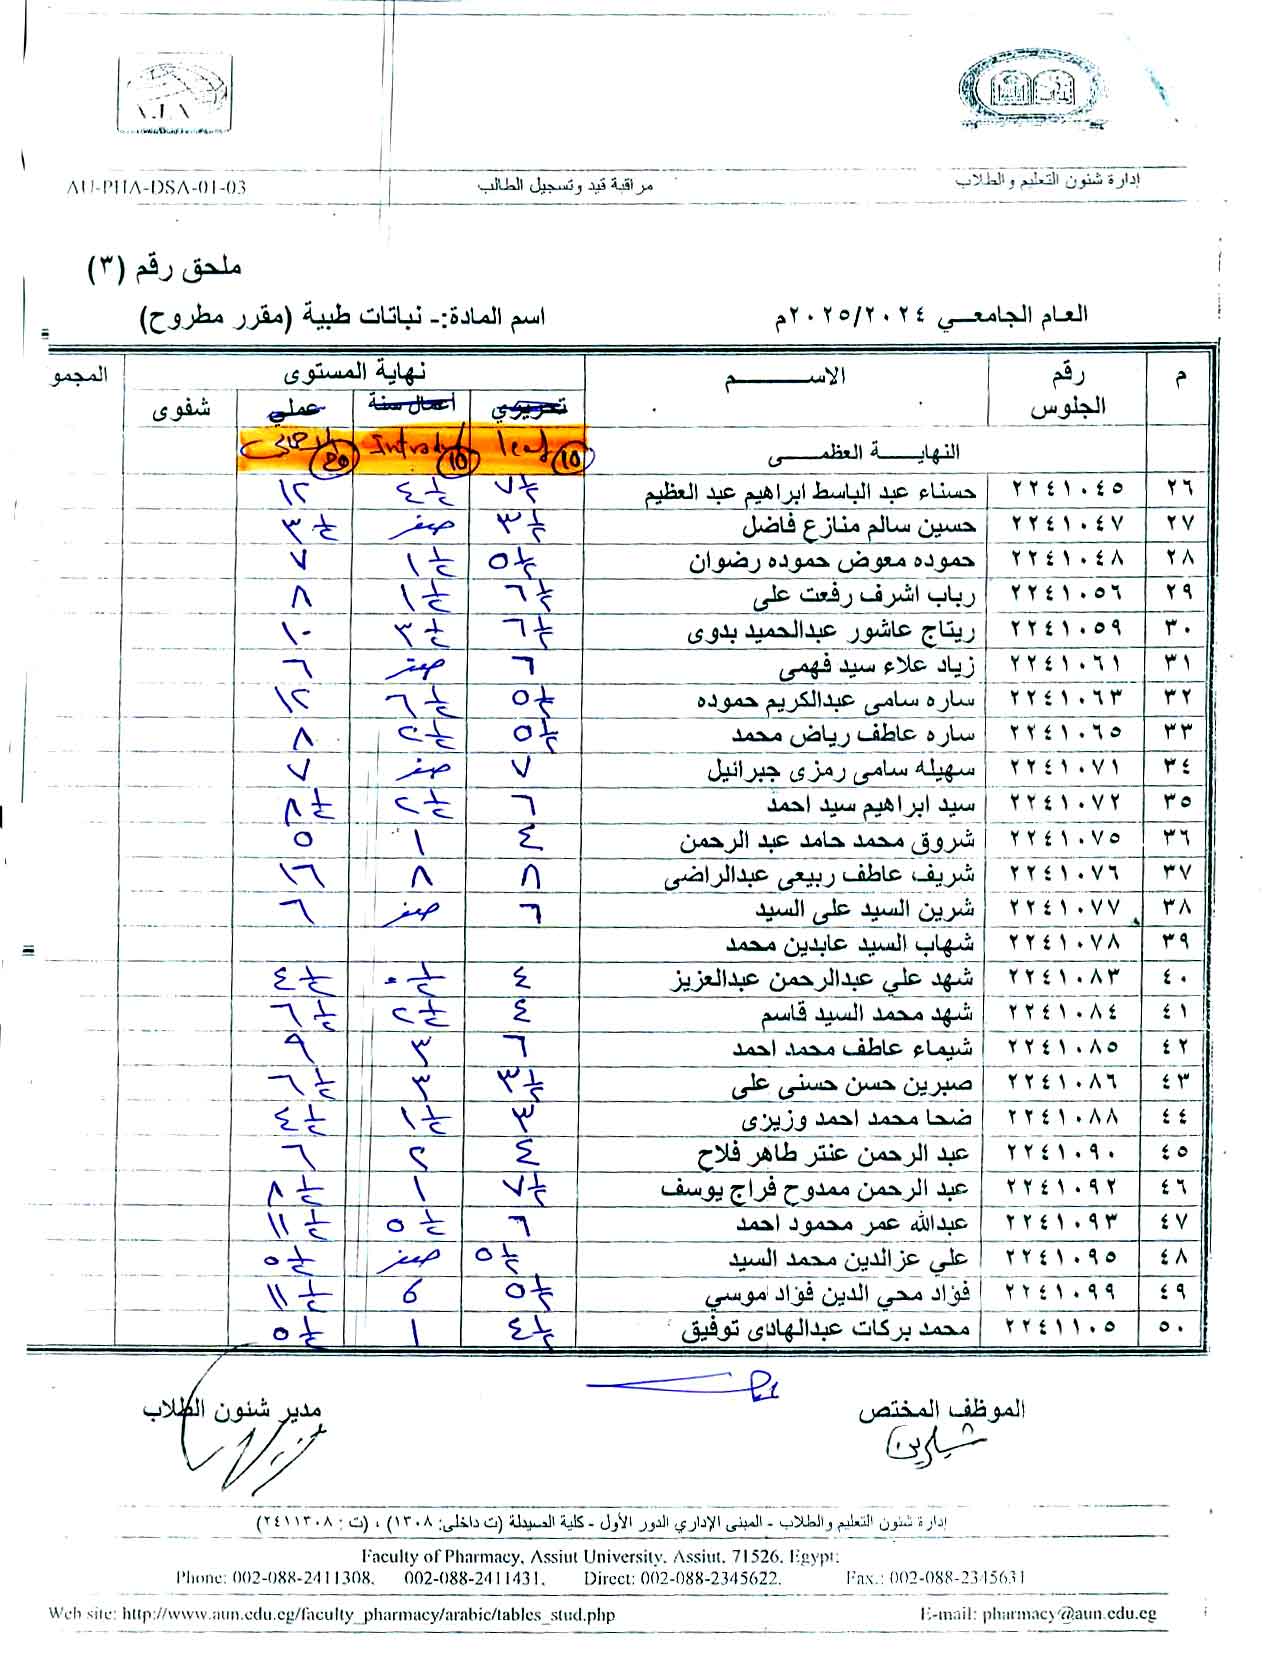 إدارة شئون التعليم والطلاب مراقبة قيد وتسجيل الطالب AU-PHA-DSA-01-03
ملحق رقم (٣)
العام الجامعي ٢٠٢٥/٢٠٢٤م اسم المادة:- نباتات طبية (مقرر مطروح)
م رقم الجلوس الاسم نهاية المستوى المجمو
تحريري اعمال سنة عملي شفوى
النهاية العظمى leaf 10 Introd 10 20
٢٦ ٢٢٤١٠٤٥ حسناء عبد الباسط ابراهيم عبد العظيم ٧ ½ ٤ ½ ١٢
٢٧ ٢٢٤١٠٤٧ حسين سالم منازع فاضل ٣ ½ صفر ٣ ½
٢٨ ٢٢٤١٠٤٨ حموده معوض حموده رضوان ٥ ½ ١ ½ ٧
٢٩ ٢٢٤١٠٥٦ رباب اشرف رفعت على ٦ ½ ١ ½ ٨
٣٠ ٢٢٤١٠٥٩ ريتاج عاشور عبدالحميد بدوى ٦ ½ ٣ ½ ١٠
٣١ ٢٢٤١٠٦١ زياد علاء سيد فهمى ٦ صفر ٦
٣٢ ٢٢٤١٠٦٣ ساره سامى عبدالكريم حموده ٥ ½ ٦ ½ ١٢
٣٣ ٢٢٤١٠٦٥ ساره عاطف رياض محمد ٥ ½ ٢ ½ ٨
٣٤ ٢٢٤١٠٧١ سهيله سامى رمزى جبرانيل ٧ صفر ٧
٣٥ ٢٢٤١٠٧٢ سيد ابراهيم سيد احمد ٦ ٢ ½ ٨ ½
٣٦ ٢٢٤١٠٧٥ شروق محمد حامد عبد الرحمن ٤ ١ ٥
٣٧ ٢٢٤١٠٧٦ شريف عاطف ربيعى عبدالراضى ٨ ٨ ١٦
٣٨ ٢٢٤١٠٧٧ شرين السيد على السيد ٦ صفر ٦
٣٩ ٢٢٤١٠٧٨ شهاب السيد عابدين محمد
٤٠ ٢٢٤١٠٨٣ شهد علي عبدالرحمن عبدالعزيز ٤ ٠ ½ ٤ ½
٤١ ٢٢٤١٠٨٤ شهد محمد السيد قاسم ٤ ٢ ½ ٦ ½
٤٢ ٢٢٤١٠٨٥ شيماء عاطف محمد احمد ٦ ٣ ٩
٤٣ ٢٢٤١٠٨٦ صبرين حسن حسنى على ٣ ½ ٣ ٦ ½
٤٤ ٢٢٤١٠٨٨ ضحا محمد احمد وزيزى ٣ ١ ½ ٤ ½
٤٥ ٢٢٤١٠٩٠ عبد الرحمن عنتر طاهر فلاح ٤ ٢ ٦
٤٦ ٢٢٤١٠٩٢ عبد الرحمن ممدوح فراج يوسف ٧ ½ ١ ٨ ½
٤٧ ٢٢٤١٠٩٣ عبدالله عمر محمود احمد ٦ ٥ ½ ١١ ½
٤٨ ٢٢٤١٠٩٥ علي عزالدين محمد السيد ٥ ½ صفر ٥ ½
٤٩ ٢٢٤١٠٩٩ فؤاد محي الدين فؤاد موسي ٥ ½ 6 ١١ ½
٥٠ ٢٢٤١١٠٥ محمد بركات عبدالهادى توفيق ٤ ½ ١ ٥ ½
الموظف المختص مدير شئون الطلاب
شيرين
إدارة شئون التعليم والطلاب - المبنى الإداري الدور الأول - كلية الصيدلة (ت داخلى: ١٣٠٨) ، (ت : ٢٤١١٣٠٨)
Faculty of Pharmacy, Assiut University, Assiut, 71526, Egypt:
Phone: 002-088-2411308, 002-088-2411431, Direct: 002-088-2345622, Fax.: 002-088-2345631
Web site: http://www.aun.edu.eg/faculty_pharmacy/arabic/tables_stud.php E-mail: pharmacy@aun.edu.eg